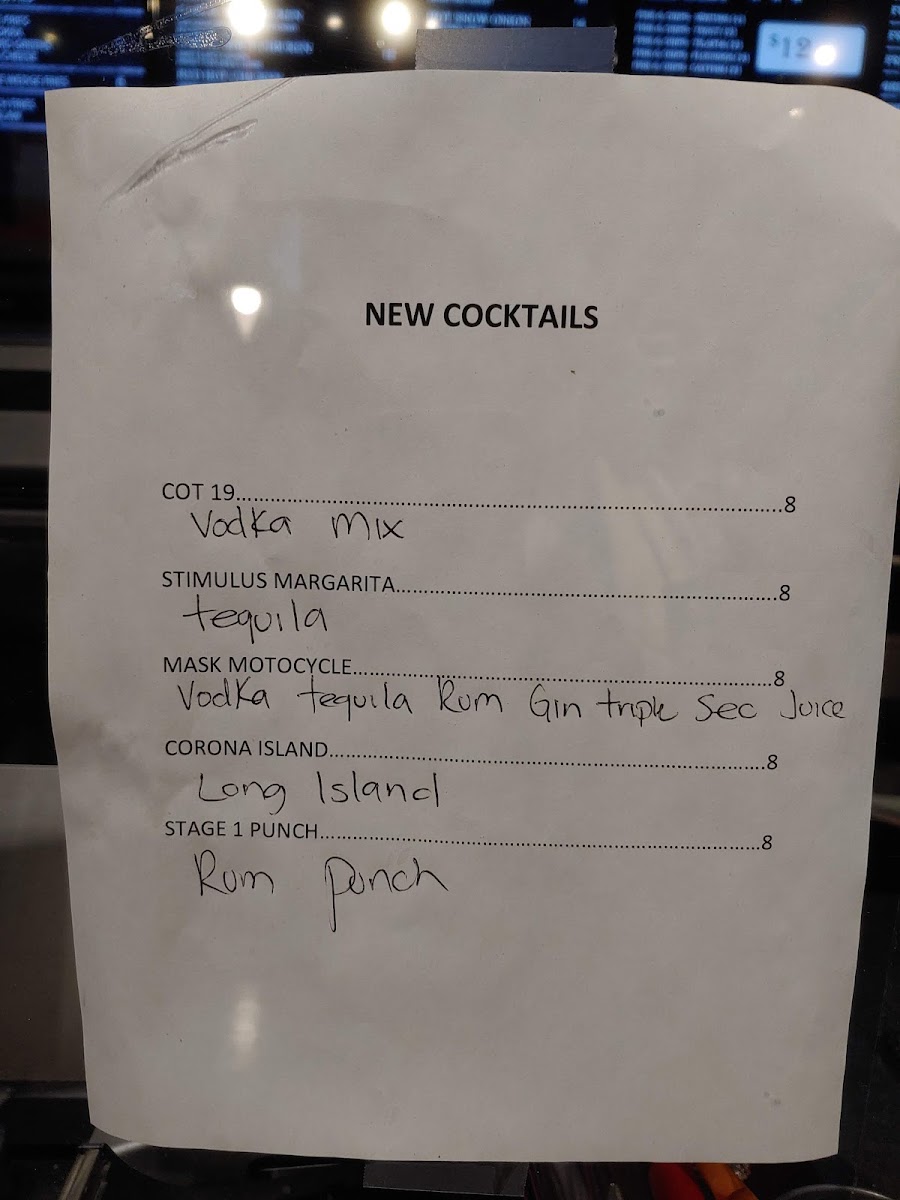 $12
NEW COCKTAILS
COT 19........................................................................................8
Vodka mix
STIMULUS MARGARITA..............................................................8
tequila
MASK MOTOCYCLE.....................................................................8
Vodka tequila Rum Gin triple Sec Juice
CORONA ISLAND........................................................................8
Long Island
STAGE 1 PUNCH.........................................................................8
Rum punch